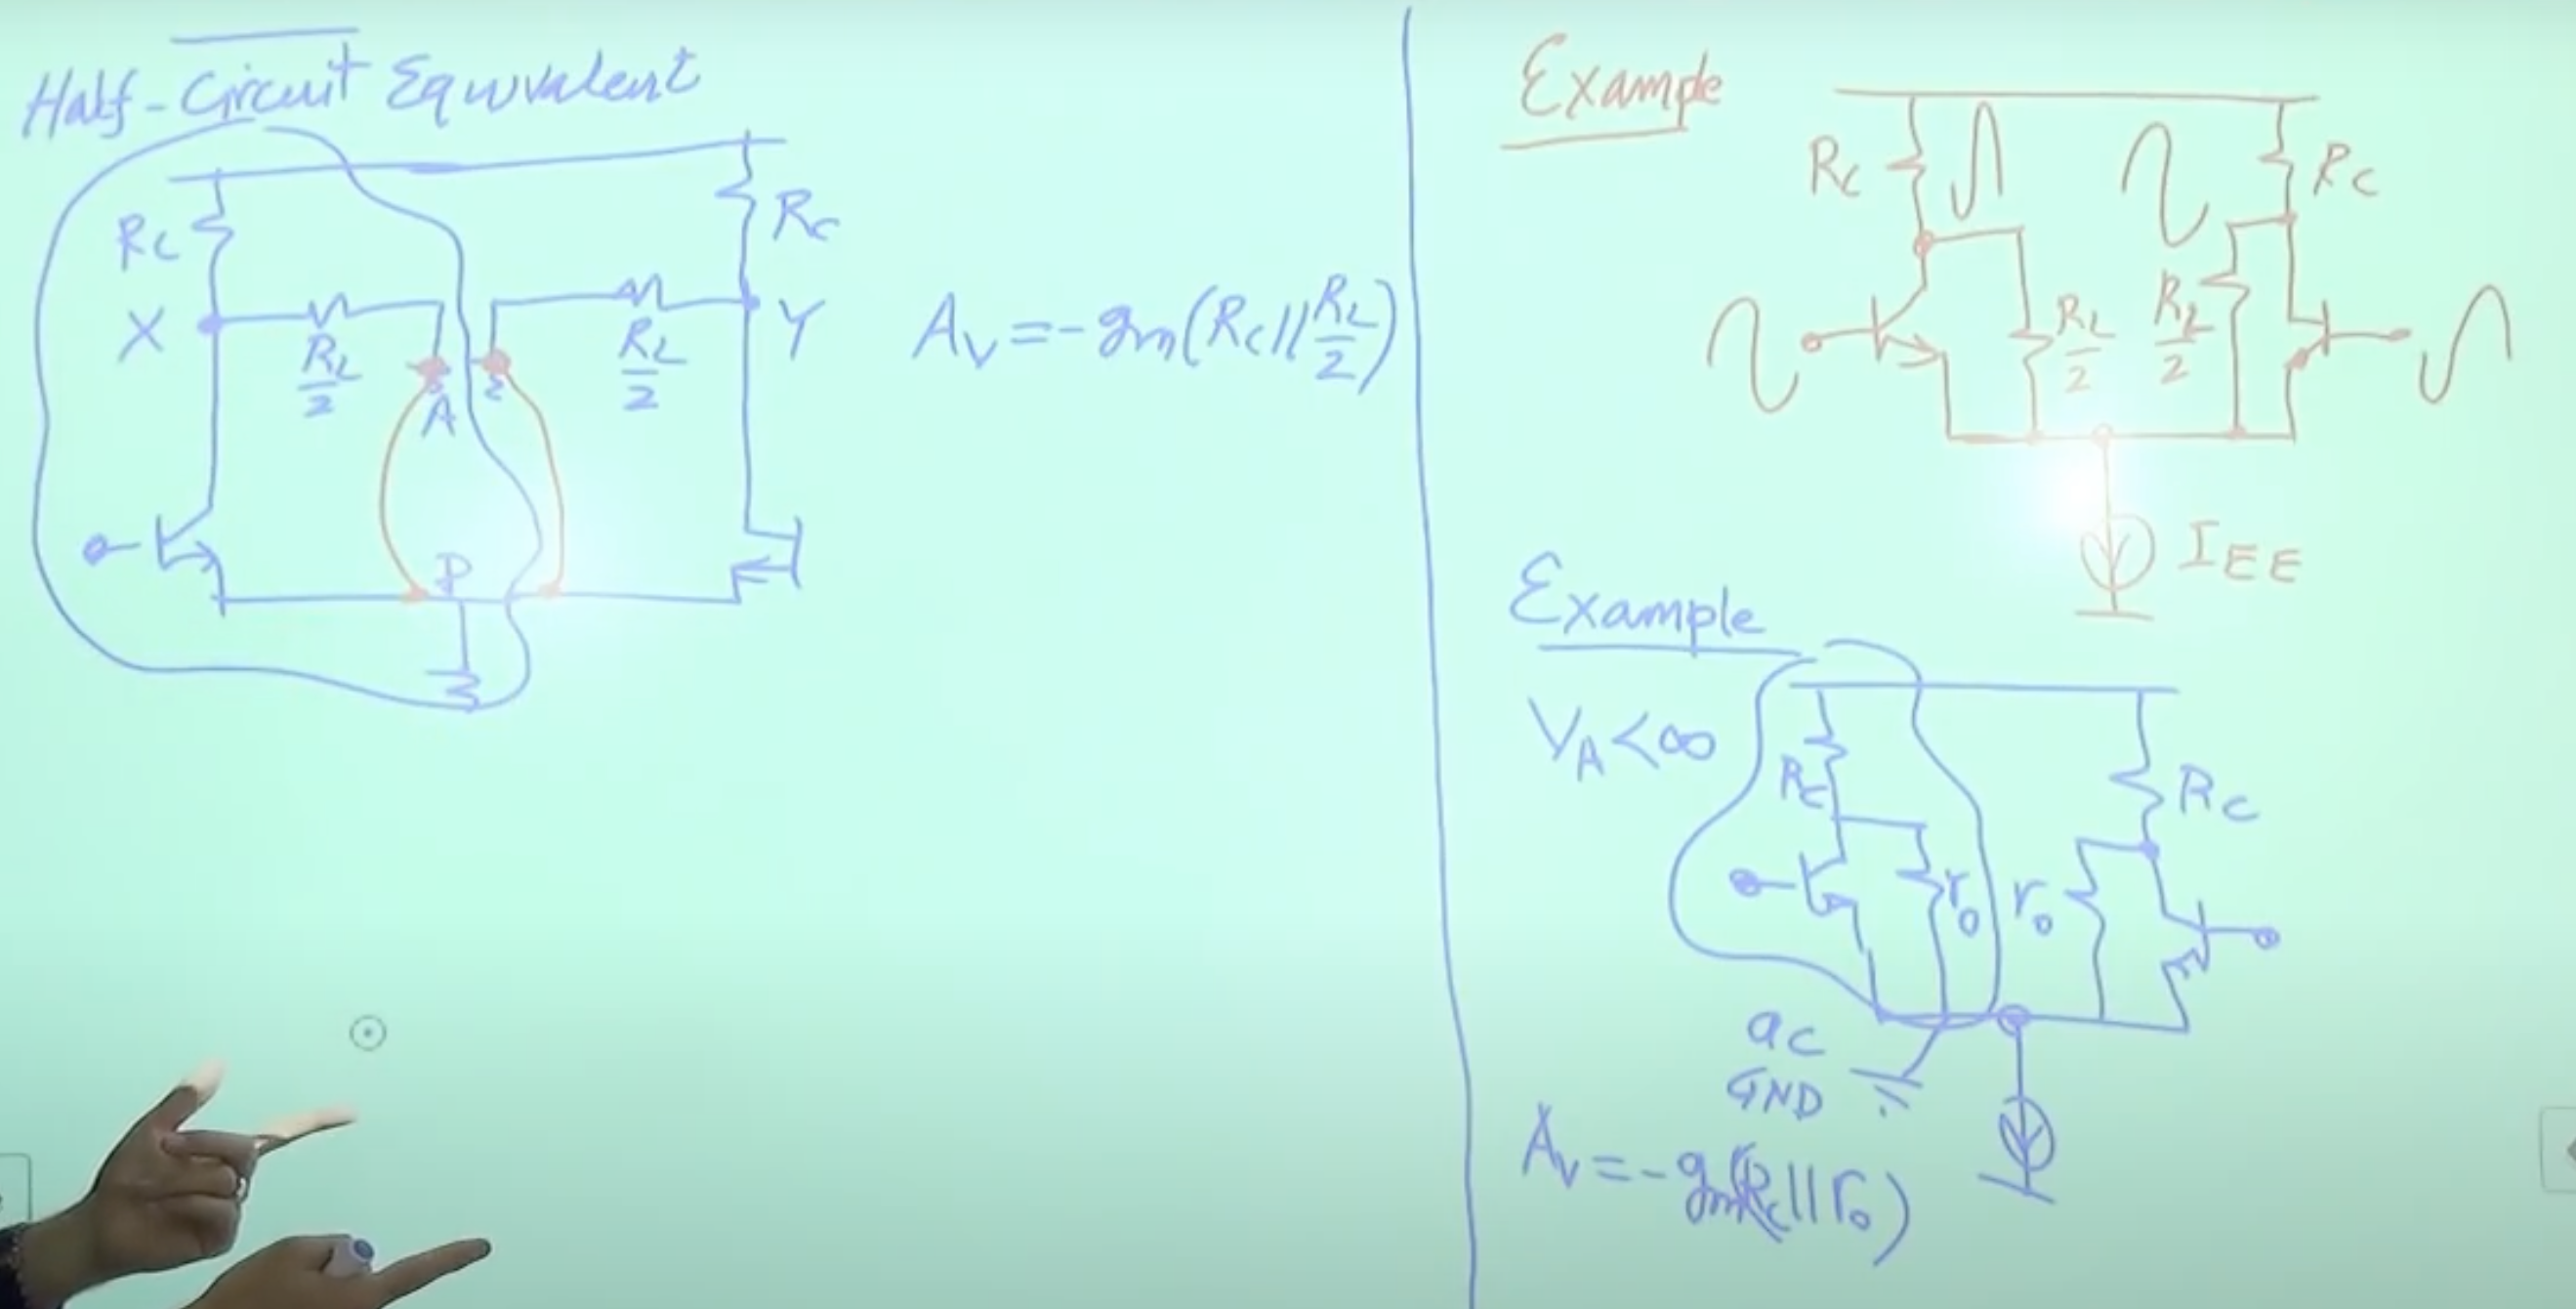 Half-Circuit Equivalent
RC
RC
X
RL/2
A
RL/2
Y
P
AV = -gm(RC||RL/2)
Example
RC
RC
RL/2
RL/2
IEE
Example
VA<∞
RC
RC
ro
ro
ac
GND
AV = -gm(RC||ro)